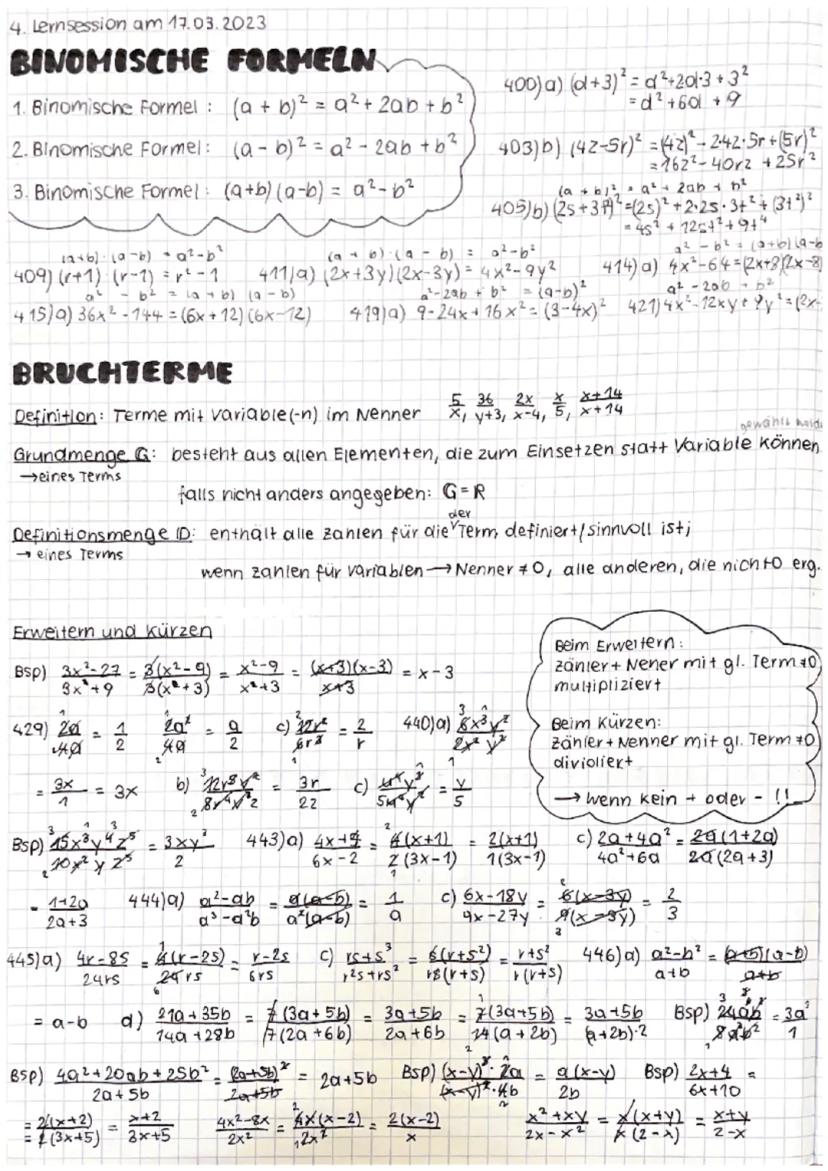 4. Lernsession am 17.03.2023
BINOMISCHE FORMELN
1. Binomische Formel: (a + b)² = a² + 2ab + b²
2. Binomische Formel: (a - b)² = a² - 2ab + b²
3. Binomische Formel: (a+b)(a-b) = a² - b²
400)a) (d+3)² = d²+2d·3 + 3²
= d² + 6d + 9
403)b) (4z-5r)² = (4z)² - 2·4z·5r + (5r)²
= 16z² - 40rz + 25r²
(a + b)² = a² + 2ab + b²
405)b) (2s+3t²)² = (2s)² + 2·2s·3t² + (3t²)²
= 4s² + 12st² + 9t⁴
(a+b)·(a-b) = a²-b²
409) (r+1)·(r-1) = r² - 1
(a + b)·(a - b) = a²-b²
411)a) (2x+3y)(2x-3y) = 4x²-9y²
a² - b² = (a+b)(a-b
414)a) 4x²-64 = (2x+8)(2x-8)
a² - b² = (a + b) (a - b)
415)a) 36x² - 144 = (6x + 12)(6x-12)
a²-2ab + b² = (a-b)²
419)a) 9-24x + 16x² = (3-4x)²
a² - 2ab + b²
421) 4x²-12xy + 9y² = (2x-
BRUCHTERME
Definition: Terme mit Variable(-n) im Nenner 5/x, 36/y+3, 2x/x-4, x/5, x+14/x+14
gewählt
Grundmenge G: besteht aus allen Elementen, die zum Einsetzen statt Variable können
→eines Terms
falls nicht anders angegeben: G=R
der
Definitionsmenge D: enthält alle Zahlen für die Term, definiert/sinnvoll ist;
→ eines Terms
wenn Zahlen für Variablen → Nenner ≠ 0, alle anderen, die nicht 0 erg.
Erweitern und Kürzen
Beim Erweitern:
Zähler + Nener mit gl. Term ≠0
multipliziert
Beim Kürzen:
Zähler + Nenner mit gl. Term ≠0
dividiert
→ wenn kein + oder - !!
Bsp) 3x²-27/3x²+9 = 3(x²-9)/3(x²+3) = x²-9/x²+3 = (x+3)(x-3)/x+3 = x-3
429) 2a/4a = 1/2 2a²/4a = a/2 c) 12r²/6r³ = 2/r 440)a) 6x³y²/2x²y²
= 3x/1 = 3x b) = 3r/2z c) = y/5
Bsp) 15x³y⁴z⁵/10x²yz⁵ = 3xy³/2 443)a) 4x+4/6x-2 = 4(x+1)/2(3x-1) = 2(x+1)/1(3x-1) c) 2a+4a²/4a²+6a = 2a(1+2a)/2a(2a+3)
= 1+2a/2a+3 444)a) a²-ab/a³-a²b = a(a-b)/a²(a-b) = 1/a c) 6x-18y/9x-27y = 6(x-3y)/9(x-3y) = 2/3
445)a) 4r-8s/24rs = 4(r-2s)/24rs = r-2s/6rs c) rs+s³/r²s+rs² = s(r+s²)/rs(r+s) = r+s²/r(r+s) 446)a) a²-b²/a+b = (a+b)(a-b)/a+b
= a-b d) 21a+35b/14a+28b = 7(3a+5b)/7(2a+6b) = 3a+5b/2a+6b = 7(3a+5b)/14(a+2b) = 3a+5b/(a+2b)·2 Bsp) = 3a/1
Bsp) 4a²+20ab+25b²/2a+5b = (2a+5b)²/2a+5b = 2a+5b Bsp) (x-y)³·2a/(x-y)²·4b = a(x-y)/2b Bsp) 2x+4/6x+10 =
= 2(x+2)/2(3x+5) = x+2/3x+5 4x²-8x/2x² = 4x(x-2)/2x² = 2(x-2)/x x²+xy/2x-x² = x(x+y)/x(2-x) = x+y/2-x